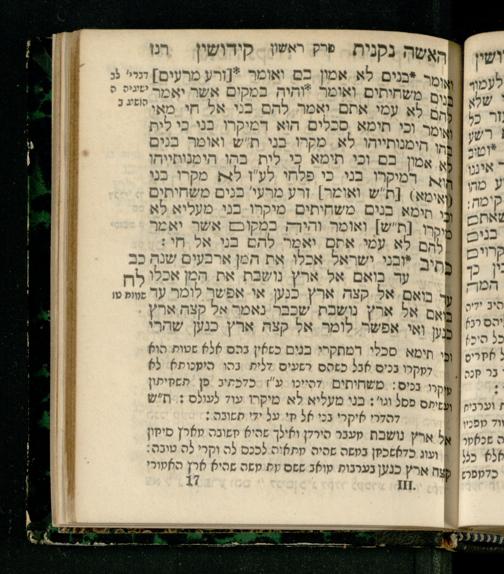 האשה נקנית פרק ראשון קידושין רנז
ואומר *בנים לא אמון בם ואומר *[זרע מרעים]
בנים משחיתים ואומר *והיה במקום אשר יאמר
להם לא עמי אתם יאמר להם בני אל חי מאי
ואומר וכי תימא סכלים הוא דמיקרו בני כי לית
בהו הימנותייהו לא מקרו בני ת״ש ואומר בנים
לא אמון בם וכי תימא כי לית בהו הימנותייהו
הוא דמיקרו בני כי פלחי לע״ז לא מקרו בני
(ואימא) [ת״ש ואומר] זרע מרעי׳ בנים משחיתים
וכי תימא בנים משחיתים מיקרו בני מעליא לא
מיקרו [ת״ש] ואומר והיה במקום אשר יאמר
להם לא עמי אתם יאמר להם בני אל חי:
כתיב *ובני ישראל אכלו את המן ארבעים שנה
עד בואם אל ארץ נושבת את המן אכלו
עד בואם אל קצה ארץ כנען אי אפשר לומר עד
בואם אל ארץ נושבת שכבר נאמר אל קצה ארץ
כנען ואי אפשר לומר אל קצה ארץ כנען שהרי
דברי׳ לב
ישעיה
הושע ב
כב
לח
שמות טז
וכי תימא סכלי דמתקרי בנים כשאין בהם אלא שטות הוא
דמקרו בנים אבל כשהם רשעים דלית בהו הימנותא לא
מיקרו בנים: משחיתים דהיינו ע״ז כדכתיב פן תשחיתון
ועשיתם פסל וגו׳: בני מעליא לא מיקרו עוד לעולם: ת״ש
דהדרי איקרי בני אל חי על ידי תשובה:
אל ארץ נושבת מעבר הירדן ואילך שהיא חשובה מארץ סיחון
ועוג
קצה ארץ כנען בערבות מואב ששם מת משה שהיא ארץ האמורי
17 III.